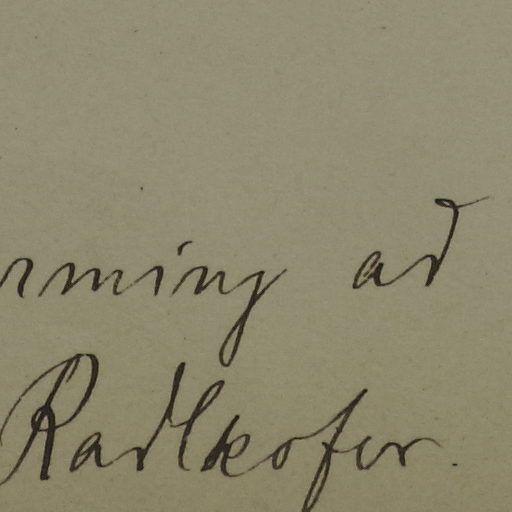 rming ad
Radlkofer.